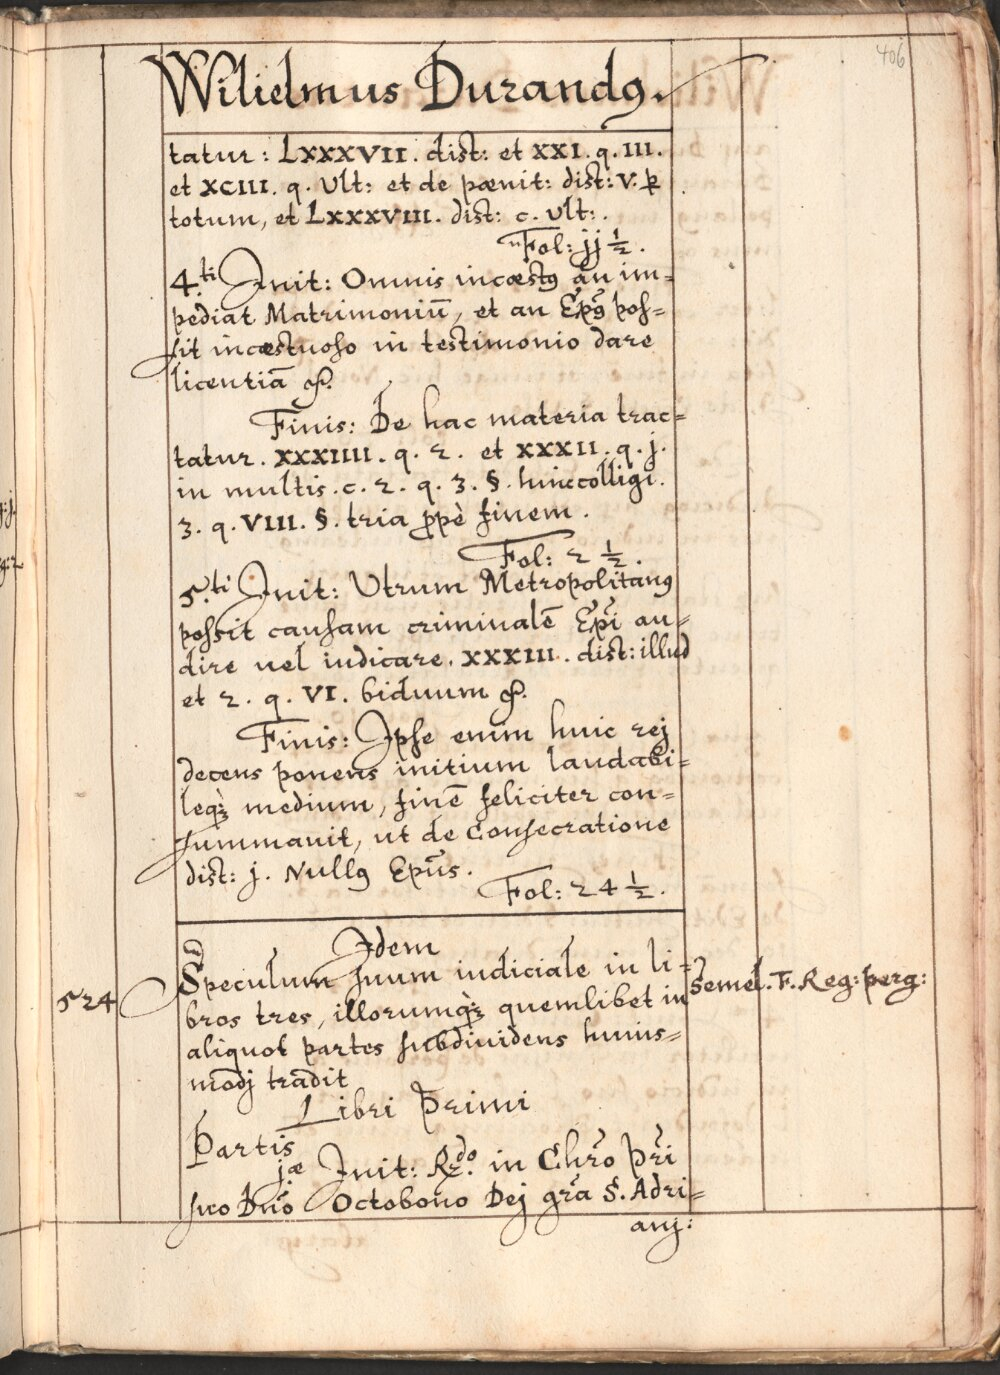 406
Wilielmus Durandꝰ.
tatur: LXXXVII. dist: et XXI. q. III.
et XCIII. q. Ult: et de pœnit: dist: V. ꝑ
totum, et LXXXVIII. dist: c. Ult:.
Fol: jj ½.
4.ti Init: Omnis incæstꝰ an im=
pediat Matrimoniū, et an Ep̄ꝰ pos=
sit incæstuoso in testimonio dare
licentiā &.
Finis: De hac materia trac=
tatur. XXXIIII. q. 2. et XXXII. q. j.
in multis. c. 2. q. 3. §. hinc colligi.
3. q. VIII. §. tria ꝓpè finem.
Fol: 2 ½.
5.ti Init: Utrum Metropolitanꝰ
possit causam criminalē Ep̄i au=
dire uel iudicare. XXXIII. dist: illud
et 2. q. VI. biduum &.
Finis: Ipse enim huic rej
decens ponens initium laudabi=
leqꝫ̀ medium, finē feliciter con=
summauit, ut de Consecratione
dist: j. Nullꝰ Epūs.
Fol: 24 ½.
Idem
524
Speculum suum iudiciale in li=
Semel. F. Reg: perg:
bros tres, illorumqꝫ̀ quemlibet in
aliquot partes subdiuidens huius=
modj tradit
Libri Primi
Partis
jæ Init: R.do in Chr̄o Pr̄i
suo Dn̄o Octobono Dej gr̄a S. Adri=
anj: